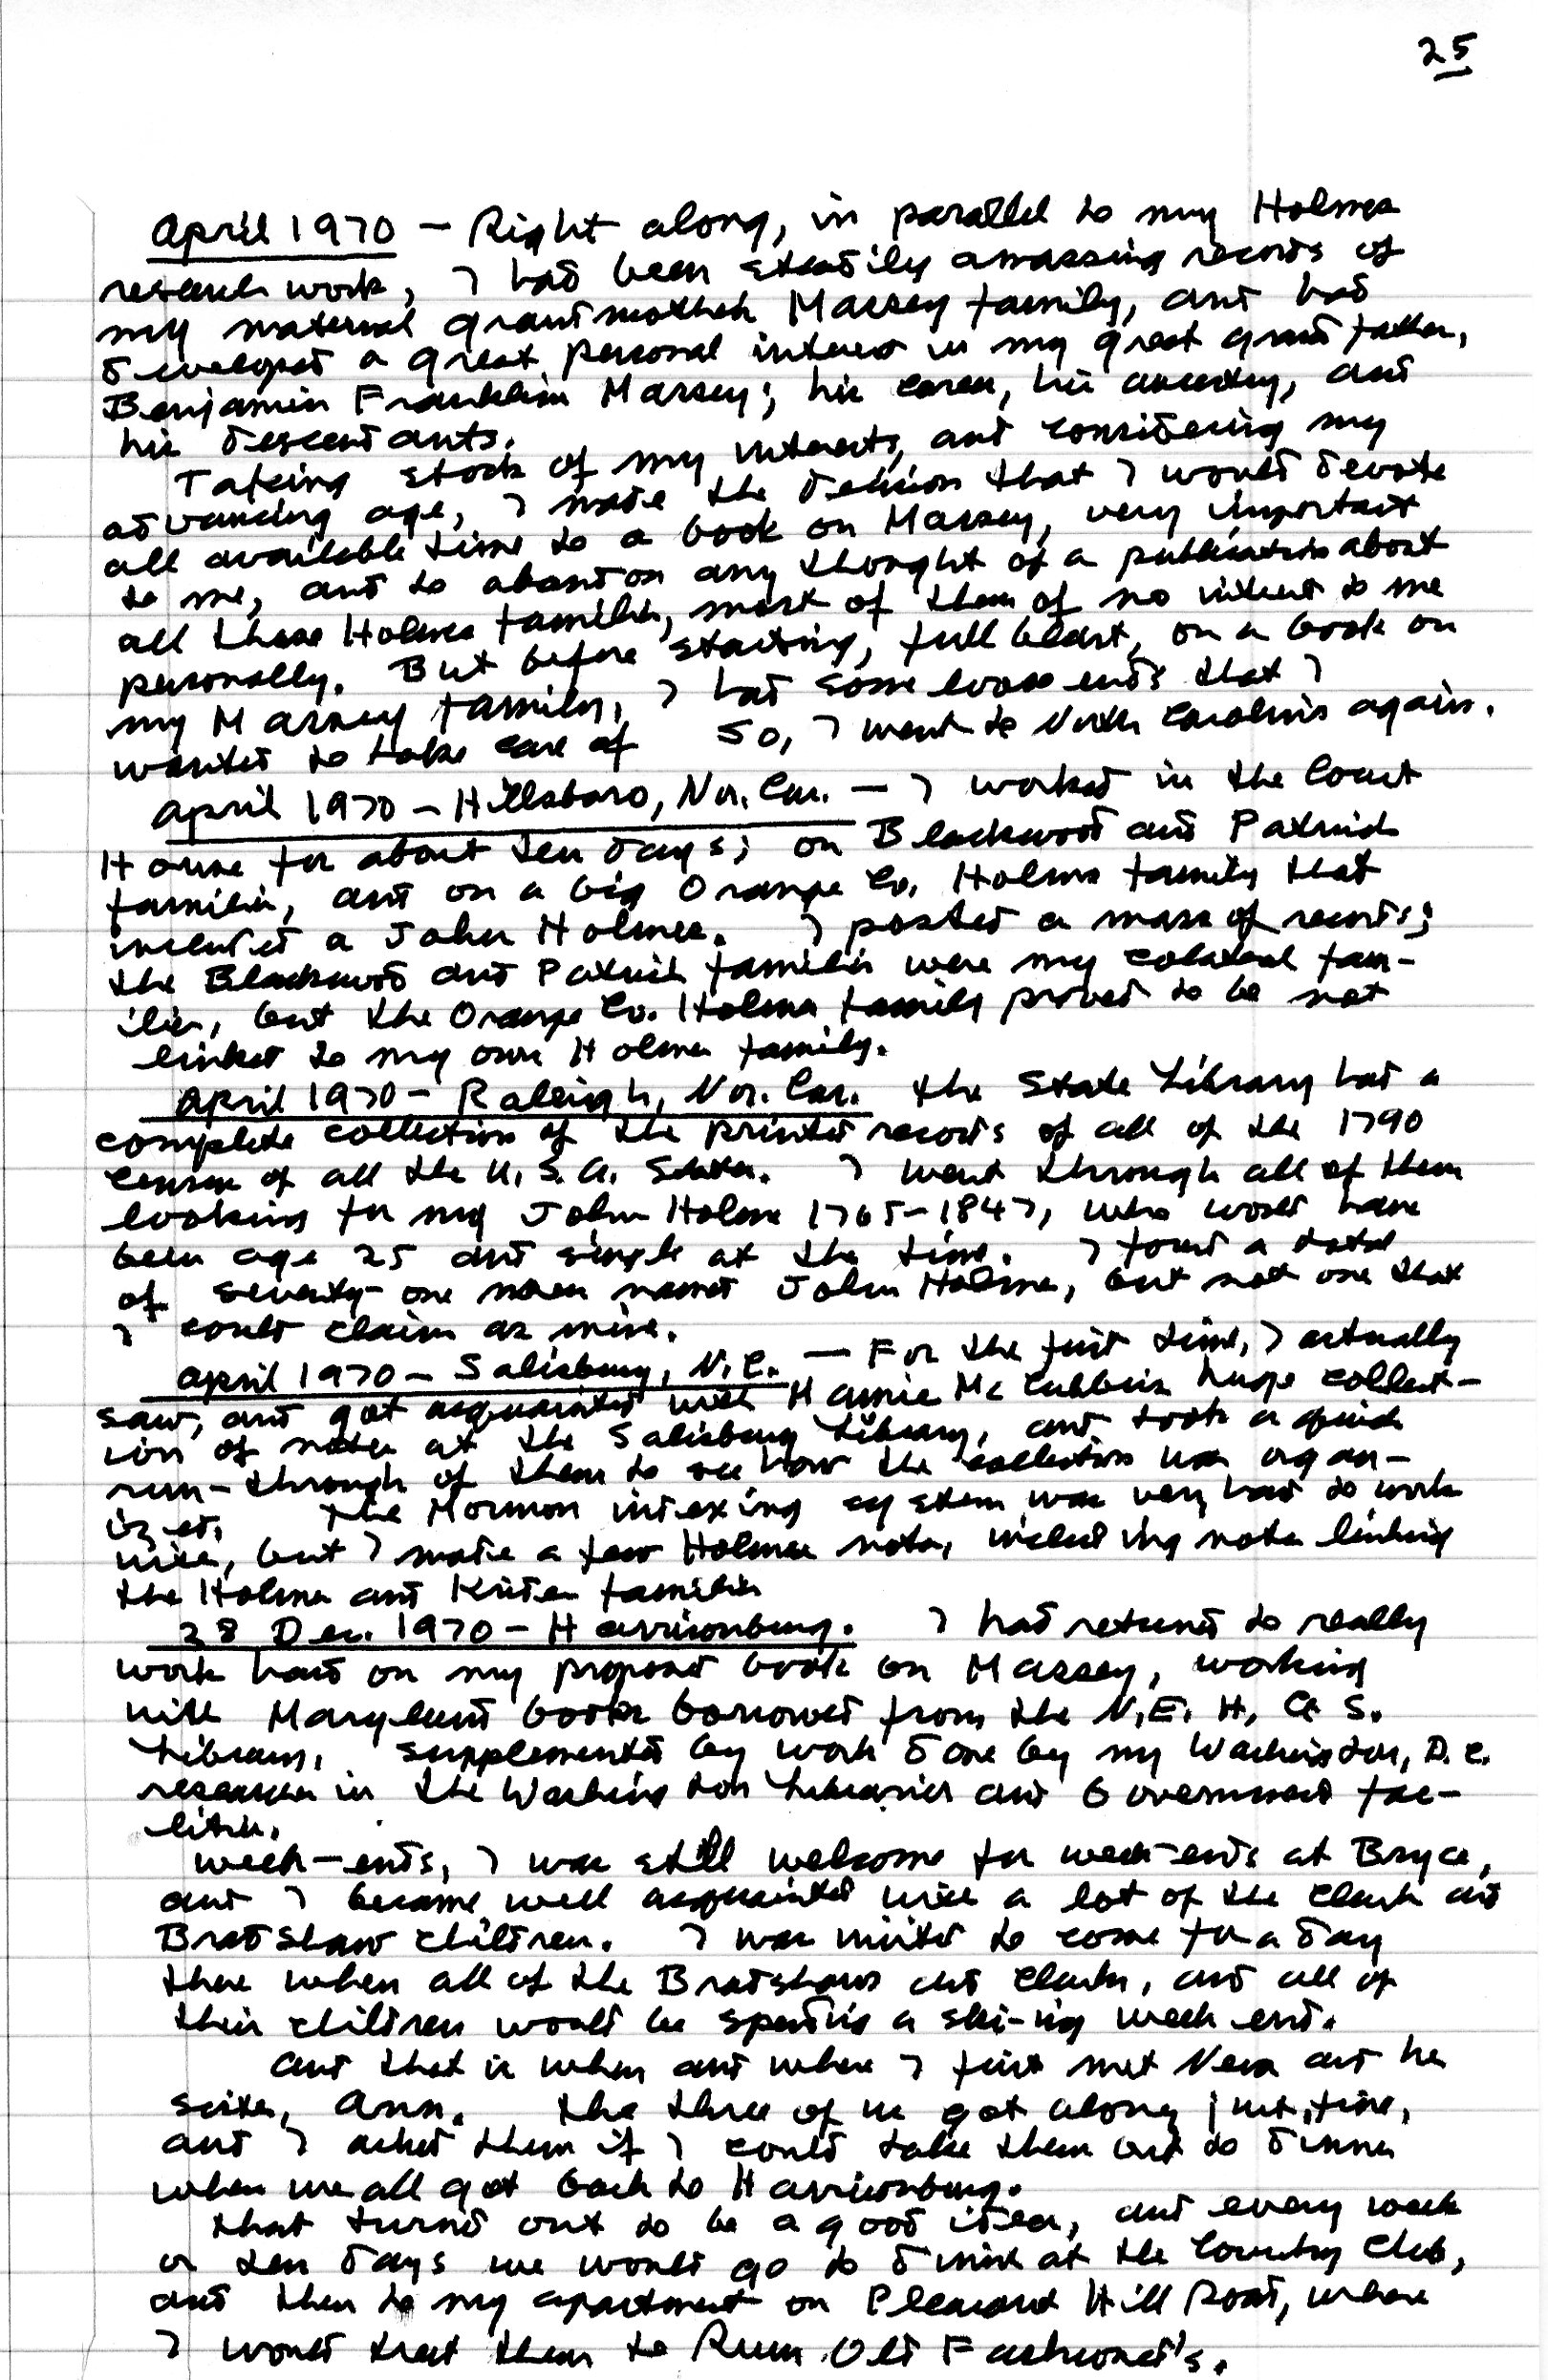 25
April 1970 – Right along, in parallel to my Holmes
research work, I had been steadily amassing records of
my maternal grandmother Massey family, and had
developed a great personal interest in my great grandfather,
Benjamin Franklin Massey; his career, his ancestry, and
his descendants.
Taking stock of my interests, and considering my
advancing age, I made the decision that I would devote
all available time to a book on Massey, very important
to me, and to abandon any thought of a publication about
all those Holmes families, most of them of no interest to me
personally. But before starting, full blast, on a book on
my Massey family, I had some loose ends that I
wanted to take care of So, I went to North Carolina again.
April 1970 – Hillsboro, No. Car. – I worked in the Court
House for about ten days; on Blackwood and Patrick
families, and on a big Orange Co. Holmes family that
included a John Holmes. I posted a mass of records;
the Blackwood and Patrick families were my colateral fam-
ilies, but the Orange Co. Holmes family proved to be not
linked to my own Holmes family.
April 1970 – Raleigh, No. Car. The State Library had a
complete collection of the printed records of all of the 1790
Census of all the U.S.A. States. I went through all of them
looking for my John Holmes 1765–1847, who would have
been age 25 and single at the time. I found a total
of seventy-one men named John Holmes, but not one that
I could claim as mine.
April 1970 – Salisbury, N.C. – For the first time, I actually
saw, and got acquainted with Mamie McCubbins huge collect-
ion of notes at the Salisbury Library, and took a quick
run-through of them to see how the collection was organ-
ized. The Mormon indexing system was very hard to work
with, but I made a few Holmes notes, including notes linking
the Holmes and families
28 Dec. 1970 – Harrisonburg. I had returned to really
work hard on my proposed book on Massey, working
with Maryland books borrowed from the N.E.H.G.S.
Library, supplemented by work done by my Washington, D.C.
researcher in the Washington Libraries and Government fac-
ilities.
Week-ends, I was still welcome for week-ends at Bryce,
and I became well acquainted with a lot of the Clark and
Bradshaw children. I was invited to come for a day
there when all of the Bradshaws and Clarks, and all of
their children would be spending a ski-ing week end.
And that is when and where I first met Neva and her
sister, Ann. The three of us got along just fine,
and I asked them if I could take them out to dinner
when we all got back to Harrisonburg.
That turned out to be a good idea, and every week
or ten days we would go to dinner at the Country Club,
and then to my apartment on Pleasant Hill Road, where
I would treat them to Rum Old Fashioned's.